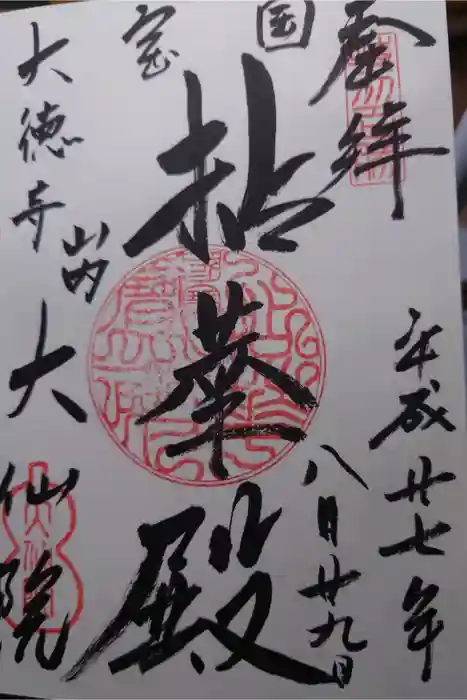 奉拝
平成廿七年
八月廿九日
国
拈華殿
宝
大徳寺
山内
大仙院